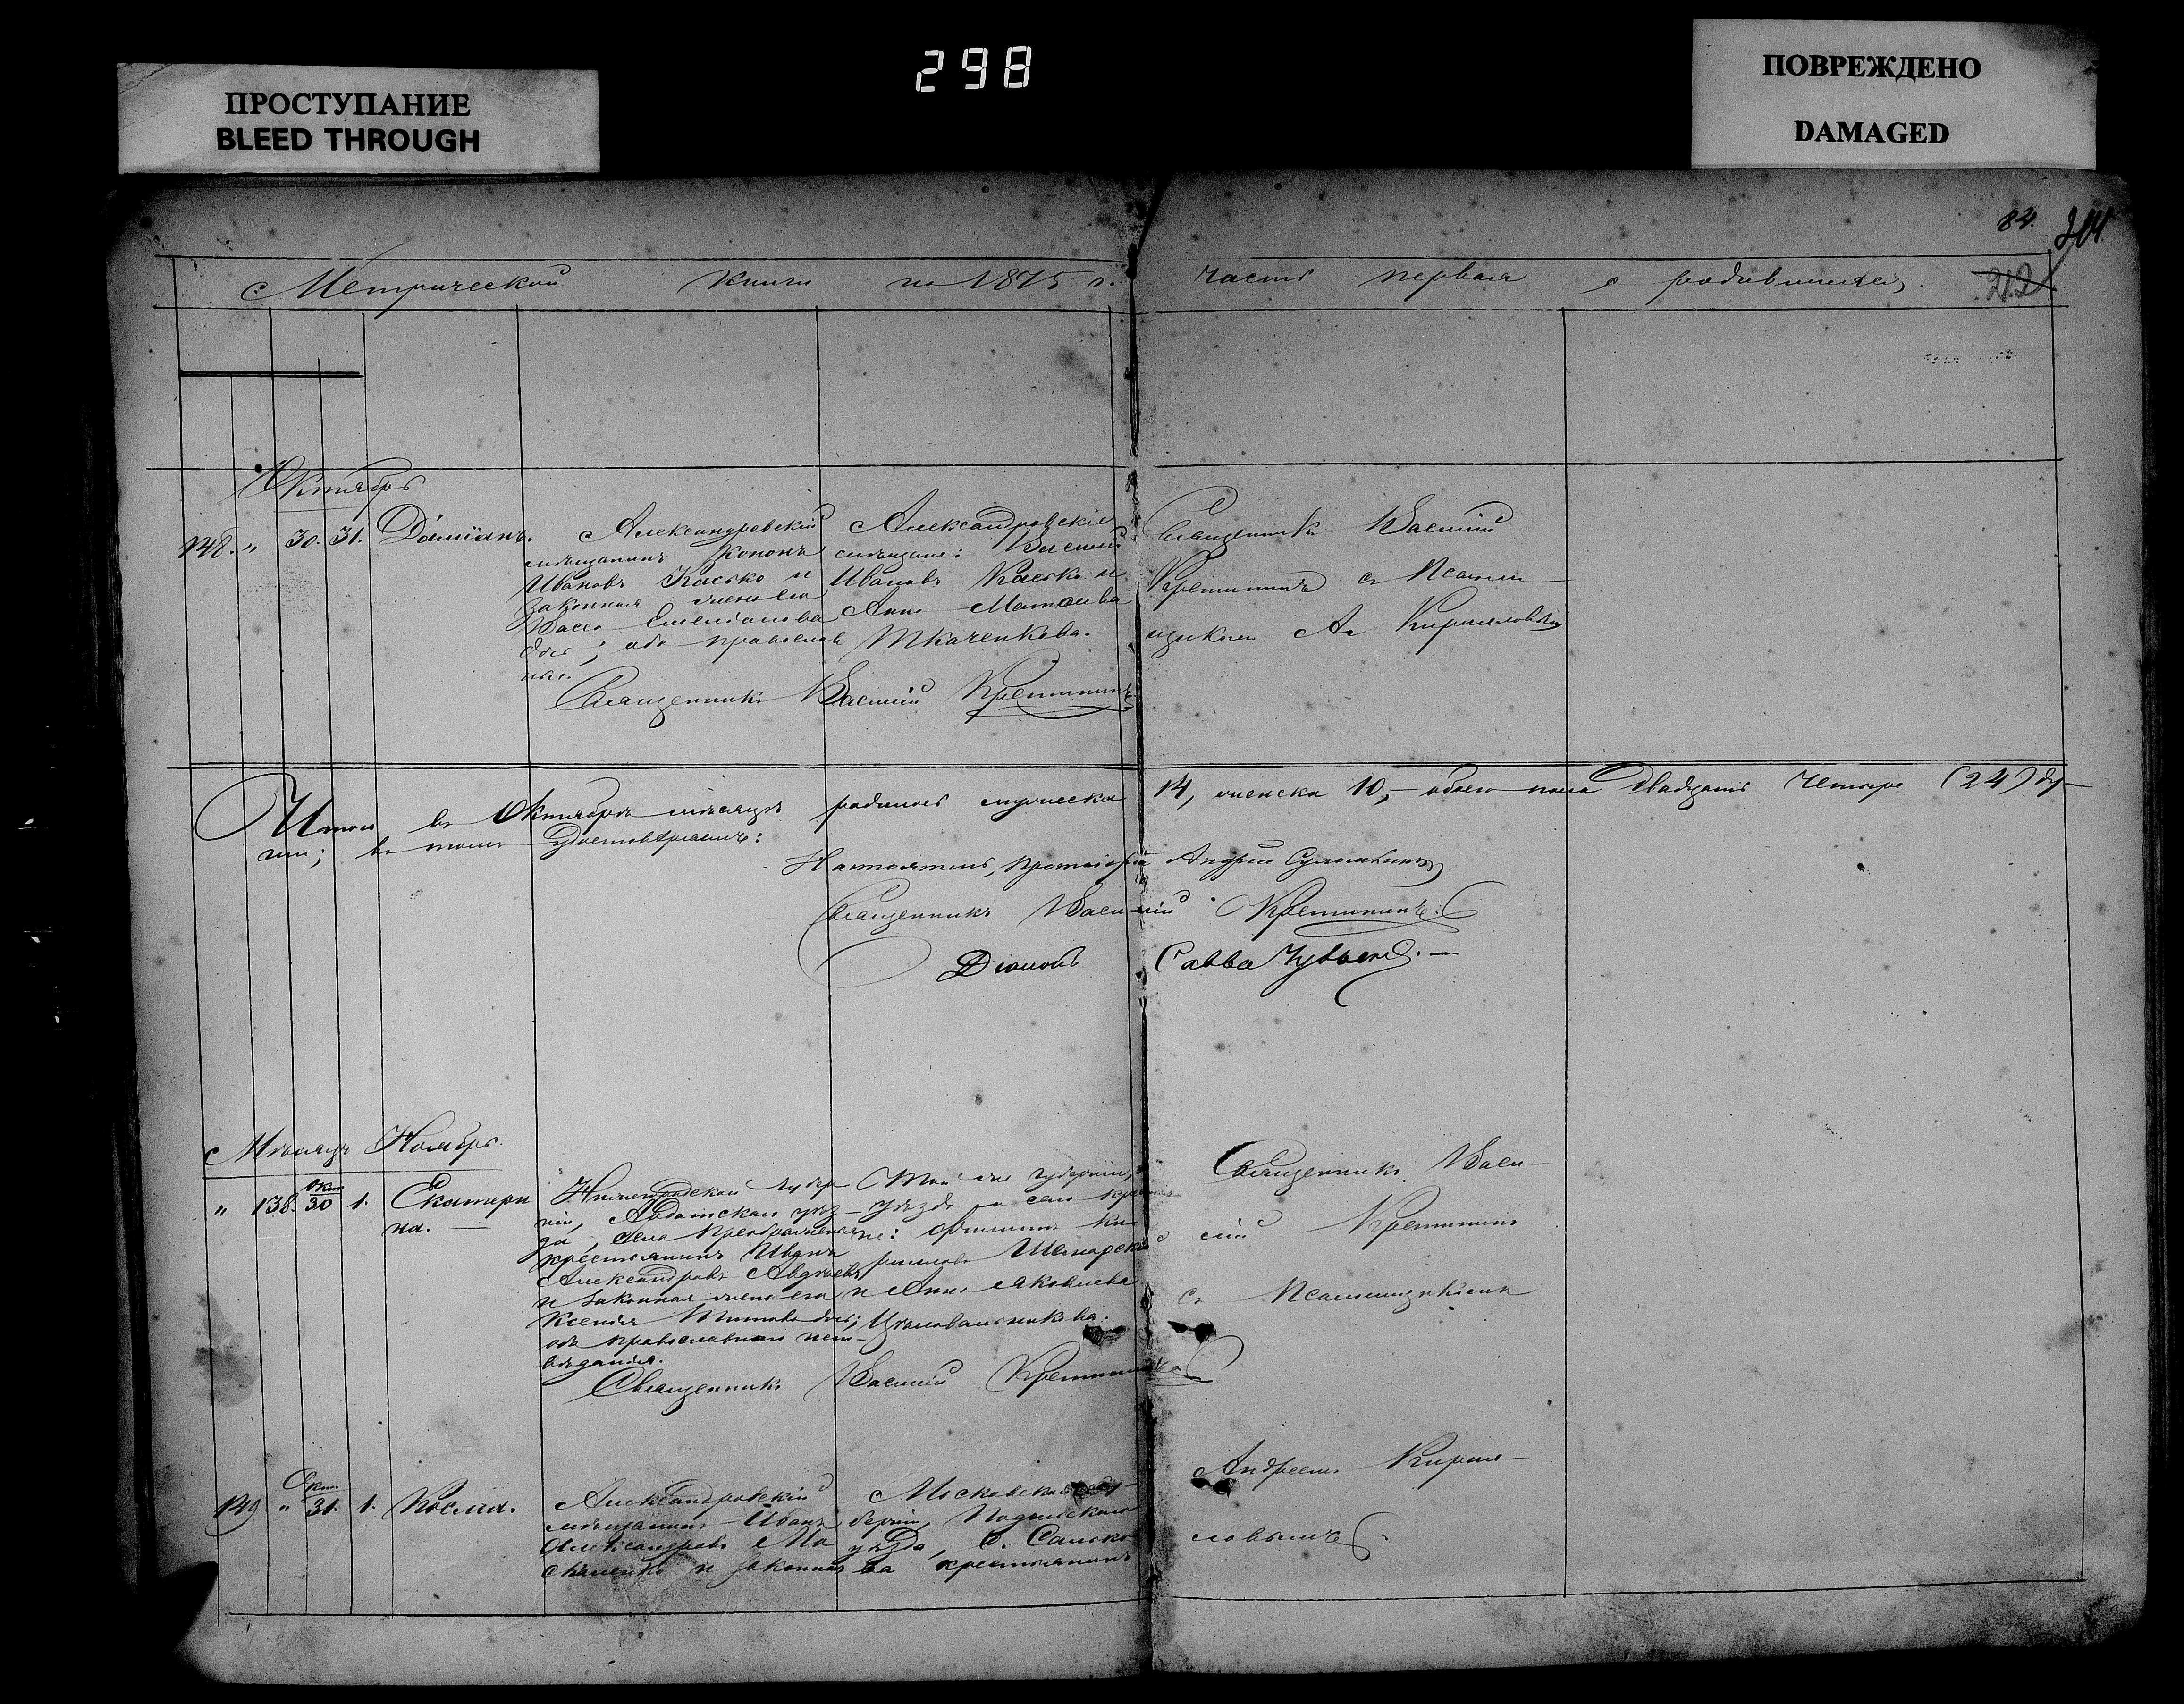 298
ПРОСТУПАНИЕ
BLEED THROUGH
ПОВРЕЖДЕНО
DAMAGED
82. 204
Метрической книги на 1875 г. часть первая о родившихся. 212
Октябрь
148. " 30. 31. Даміанъ.
Александровскій
мѣщанинъ Кононъ
Ивановъ Касько и
законная жена его
Васса Емельянова
оба православ
ные.
Александровскіе
мѣщане: Василій
Ивановъ Касько и
Анна Матѳеева
Ткаченкова.
Священникъ Василій
Кретининъ съ Псалом
щикомъ Ан. Кирилловымъ
Священникъ Василій Кретининъ
Итого въ Октябрѣ мѣсяцѣ родилось мужеска 14, женска 10, обоего пола двадцать четыре (24) ду-
ши; въ томъ удостовѣряемъ:
Настоятель, протоіерей Андрей
Священникъ Василій Кретининъ.
Діаконъ Савва
Мѣсяцъ Ноябрь.
" 138. Окт 30 1. Екатери
на.
Нижегородской губер
ніи, Ардатскаго уѣз-
да, села
крестьянинъ Иванъ
Александровъ Авдѣевъ
и законная жена его
Ксенія Титова
оба православнаго испо-
вѣданія.
Той же губерніи,
уѣзда и села
не: Ки-
рилловъ
и Анна Яковлева
Цѣловальникова.
Священникъ Васи-
лій Кретининъ
съ Псаломщикомъ
Священникъ Василій Кретининъ
149 " Окт. 31. 1. Косма.
Александровскій
мѣщанинъ Иванъ
Александровъ Мо
скаленко и законная
Московской гу-
берніи, Подольскаго
уѣзда, С.
ва крестьянинъ
Андреемъ Кирил-
ловымъ